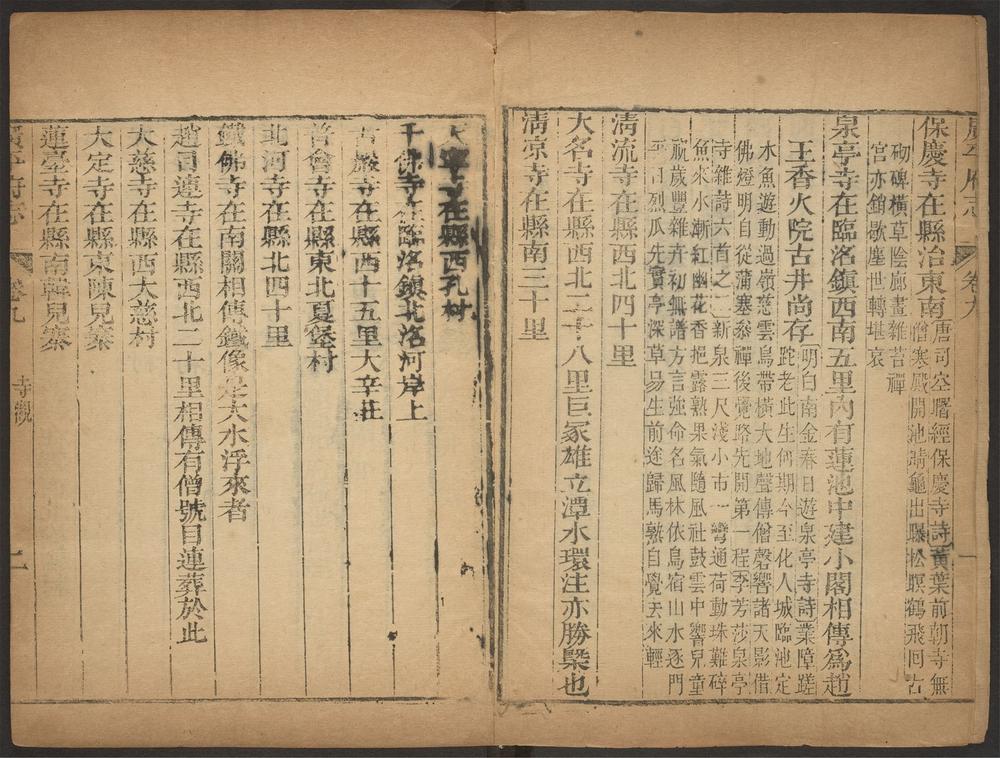 廣平府志 卷九 一
保慶寺在縣治東南 唐司空曙經保慶寺詩黃葉前朝寺無
僧寒殿開池晴龜出曝松暝鶴飛回古
砌碑橫草陰廊畫雜苔禪
宮亦銷歇塵世轉堪哀
泉亭寺在臨洺鎮西南五里內有蓮池中建小閣相傳爲趙
王香火院古井尚存 明白南金春日遊泉亭寺詩業障蹉
跎老此生何期今至化人城臨池定
水魚遊動過嶺慈雲鳥帶橫大地聲傳僧磬響諸天影借
佛燈明自從蒲塞叅禪後覺路先開第一程李芳莎泉亭
寺雜詩六首之二新泉三尺淺小市一彎通荷動珠難碎
魚來水漸紅幽花香挹露熟果氣隨風社鼓雲中響兒童
祝歲豐雜卉初無譜方言強命名風林依鳥宿山水逐門
平 日烈瓜先實亭深草易生前途歸馬熟自覺去來輕
清流寺在縣西北四十里
大名寺在縣西北二十八里巨冢雄立潭水環注亦勝槩也
清凉寺在縣南三十里
大寧寺在縣西孔村
千佛寺在臨洺鎮北洺河岸上
寺在縣西十五里大辛莊
普會寺在縣東北夏堡村
北河寺在縣北四十里
鐵佛寺在南關相傳鐵像是大水浮來者
趙目連寺在縣西北二十里相傳有僧號目連葬於此
大慈寺在縣西大慈村
大定寺在縣東陳兒寨
蓮臺寺在縣南韓兒寨
廣平府志 卷九 寺觀 二